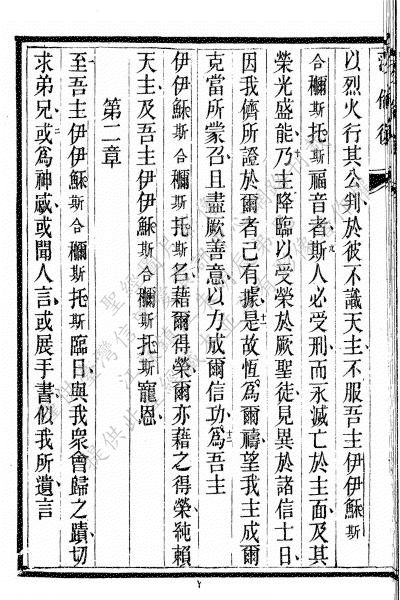 以烈火行其公判於彼不識天主不服吾主伊伊穌斯
合穪斯托斯福音者斯人必受刑而永滅亡於主面及其
榮光盛能乃主降臨以受榮於厥聖徒見異於諸信士日
因我儕所證於爾者己有據是故恆爲爾禱望我主成爾
克當所蒙召且盡厥善意以力成爾信功爲吾主
伊伊穌斯合穪斯托斯名藉爾得榮爾亦藉之得榮純賴
天主及吾主伊伊穌斯合穪斯托斯寵恩
第二章
至吾主伊伊穌斯合穪斯托斯臨日與我衆會歸之蹟切
求弟兄或爲神感或聞人言或展手書似我所遺言